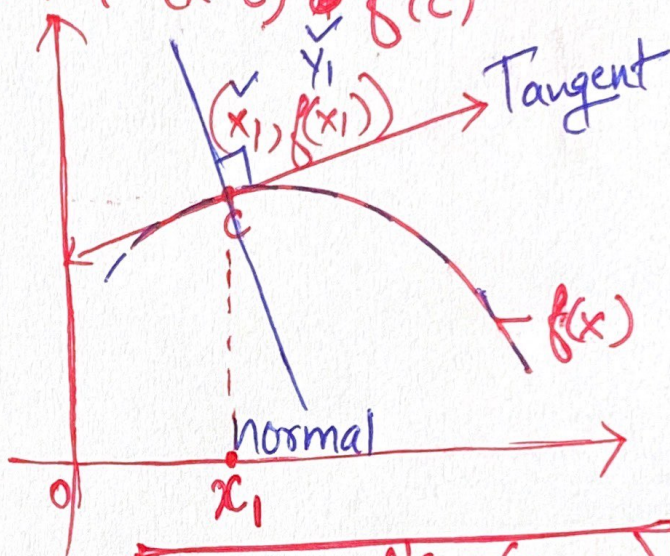 f(c)
y₁
(x₁, f(x₁))
Tangent
C
f(x)
normal
0
x₁